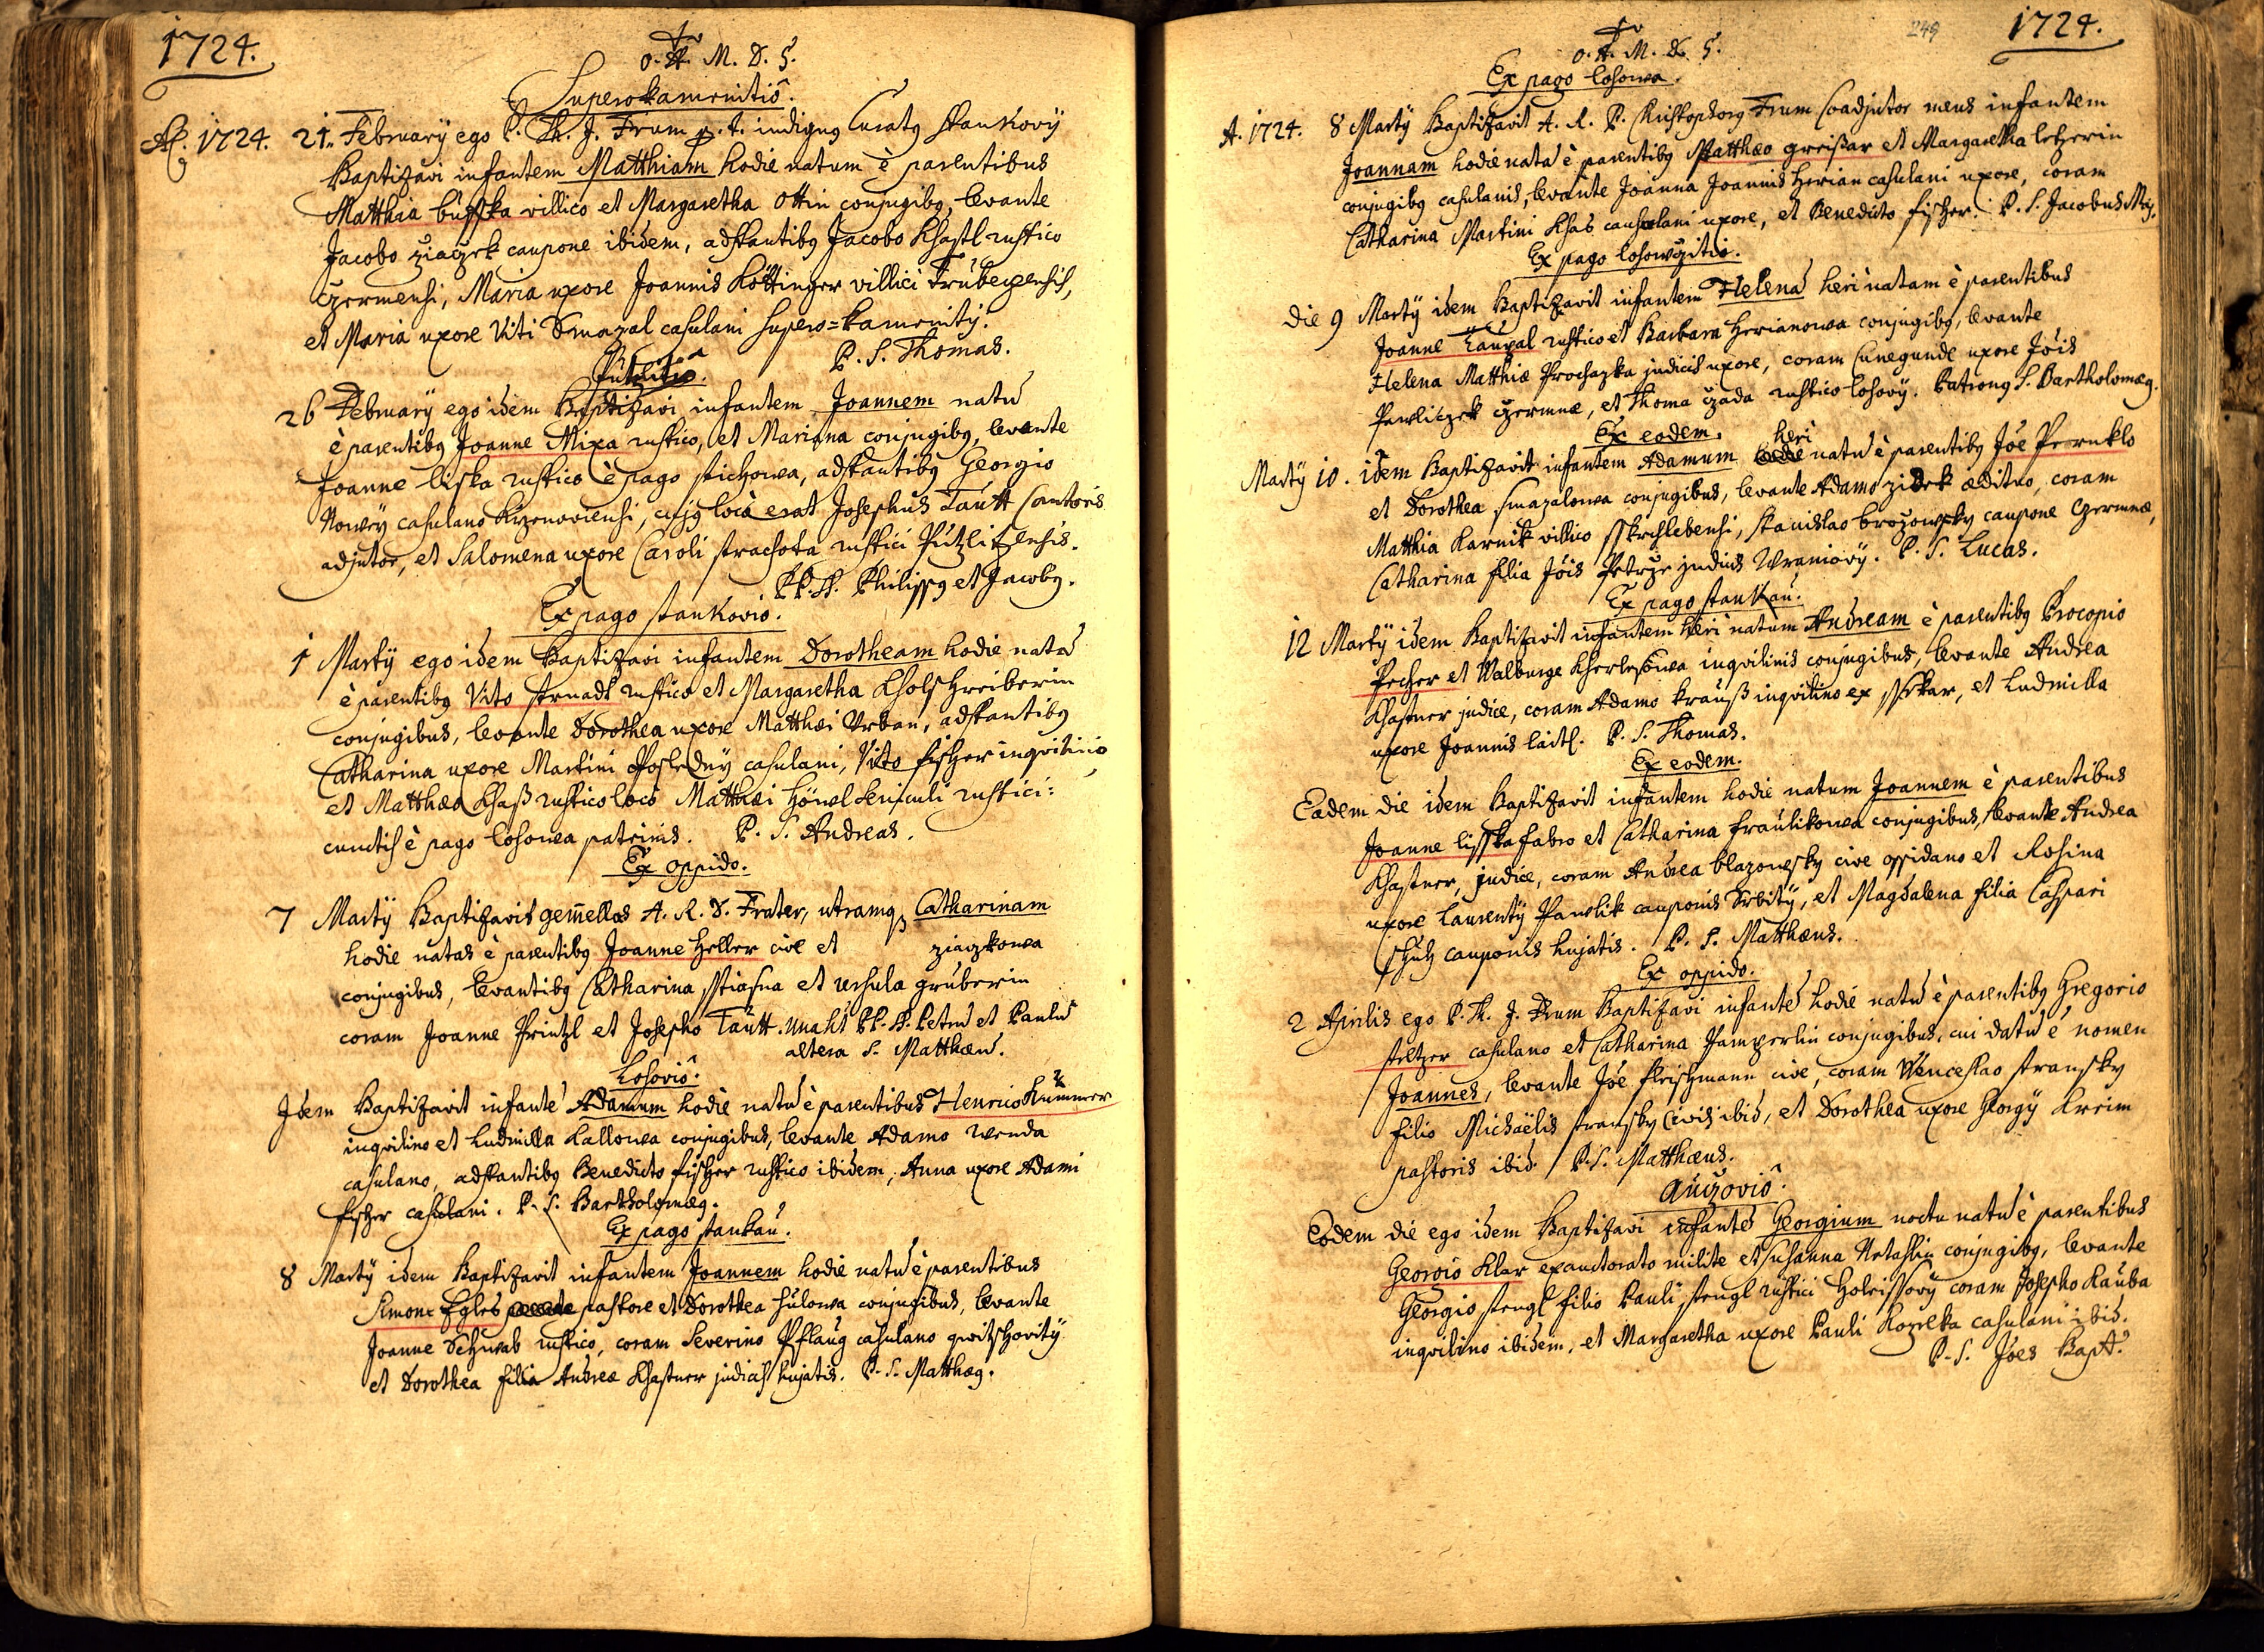 1724.
O. A. M. D. G.
Superokamenitiô.
Aô. 1724. 21. February ego P. Th. J. Frum p. t. indignq Curatq Stankovÿ
Baptizavi infantem Matthiam hodie natum è parentibus
Matthia bùsska villico et Margaretha Ottin conjugibq, levante
Jacobo ziaczek caupone ibidem, adstantibq Jacobo Khastl rustico
czermensi, Maria uxore Joannis Köttinger villici Trùbeczensis,
et Maria uxore Viti Smazal casulani supero=kamenitÿ.
P. S. Thomas.
Pützlitiô.
26 February ego idem Baptizavi infantem Joannem natū
è parentibq Joanne Mixa rustico, et Mariana conjugibq, levante
Joanne liska rustico è pago stichowa, adstantibq Georgio
Nowÿ casulano Krzenoviensi, cujq locô erat Josephus Taùtt Cantoris
adjutor, et Salomena uxore Caroli strachota rustici Pützlitzensis.
PP. SS. Philippq et Jacobq.
Ex pago stankoviô.
1 Martÿ ego idem Baptizavi infantem Dorotheam hodie natā
è parentibq Vito strnadt rustico et Margaretha Kholschreiberin
conjugibus, levante Dorothea uxore Matthæi Urban, adstantibq
Catharina uxore Martini Poslednÿ casulani, Vito fischer inqvilinio
et Matthæo Khaß rustico locô Matthæi Höwel seniculi rustici:
cunctis è pago losowa patrinis. P. S. Andreas.
Ex oppido.
7 Martÿ Baptizavit gemellas A. R. D. Frater, utramq Catharinam
hodie natas è parentibq Joanne Heller cive et ziaczkowa
conjugibus, levantibq Catharina sstiasna et Ursula grùberin
coram Joanne Printzl et Josepho Taùtt. Una hꝫ PP. SS. Petrū et Paulū
altera S. Matthæū.
Losoviô.
Idem Baptizavit infantē Adamum hodie natū è parentibus Henrico Kummer
inqvilino et Ludmilla Kallowa conjugibus, levante Adamo Wenda
casulano, adstantibq Benedicto fischer rustico ibidem, Anna uxore Adami
fischer casulani. P. S. Bartholomæq.
Ex pago stankaù.
8 Martÿ idem Baptizavit infantem Joannem hodie natū è parentibus
Simone Egles pastore et Dorothea Hùlowa conjugibus, levante
Joanne Schwab rustico, coram Severino Pflaùg casulano qwitschovitÿ
et Dorothea filia Andreæ Khastner judicis hujatis. P. S. Matthæq.
249 1724.
O. A. M. D. G.
Ex pago losowa.
A. 1724. 8 Martÿ Baptizavit A. R. P. Christophorq Frum Coadjutor meus infantem
Joannam hodie natā è parentibq Matthæo greißar et Margaretha letzerin
conjugibq casulanis, levante Joanna Joannis Herian casulani uxore, coram
Catharina Martini Khas casulani uxore, et Benedicto fischer. P. S. Jacobus Maj.
Ex pago losowczitiô.
Die 9 Martÿ idem Baptizavit infantem Helenā heri natam è parentibus
Joanne Taùpal rustico et Barbara Herianowa conjugibq, levante
Helena Matthiæ Prochazka judicis uxore, coram Cunegunde uxore Jôis
Pawliczek czermnæ, et Thoma czada rustico losovÿ. Patronq S. Bartholomæq.
Ex eodem.
Martÿ 10. idem Baptizavit infantem Adamum heri natū è parentibq Jôe Prnuklo
et Dorothea smazalowa conjugibus, levante Adamo zidek ædituo, coram
Matthia Karnik villico sskrchlebensi, stanislao brozowsky caupone czermnæ,
Catharina filia Jôis Petrze judicis Wraniovÿ. P. S. Lucas.
Ex pago stankaù.
12 Martÿ idem Baptizavit infantem heri natum Andream è parentibq Procopio
Pecher et Walburge Kherlesowa inqvilinis conjugibus, levante Andrea
Khastner judice, coram Adamo kraùß inqvilino ex ssekar, et Ludmilla
uxore Joannis laitl. P. S. Thomas.
Ex eodem.
Eadem die idem Baptizavit infantem hodie natum Joannem è parentibus
Joanne lisska fabro et Catharina fraùlikowa conjugibus, levante Andrea
Khastner, judice, coram Andrea blazowsky cive oppidano et Rosina
uxore Laurentÿ Pawlik cauponis Srbitÿ, et Magdalena filia Caspari
schùh cauponis hujatis. P. S. Matthæus.
Ex oppido.
2 Aprilis ego P. Th. J. Frum Baptizavi infantē hodie natū è parentibq Gregorio
steltzer casulano et Catharina Pamperlin conjugibus, cui datū ē nomen
Joannes, levante Jôe fleischmann cive, coram Wenceslao stransky
filio Michaëlis stransky civis ibid, et Dorothea uxore Georgÿ Kreim
pastoris ibid. P. S. Matthæus.
Aùczoviô.
Eodem die ego idem Baptizavi infantē Georgium noctu natū è parentibus
Georgio Klar exauctorato milite et Susanna Netaslin conjugibq, levante
Georgio stengl filio Pauli stengl rustici Holeissovÿ coram Josepho Kaùba
inqvilino ibidem, et Margaretha uxore Pauli Kozelka casulani ibid.
P. S. Jôes Bapt.